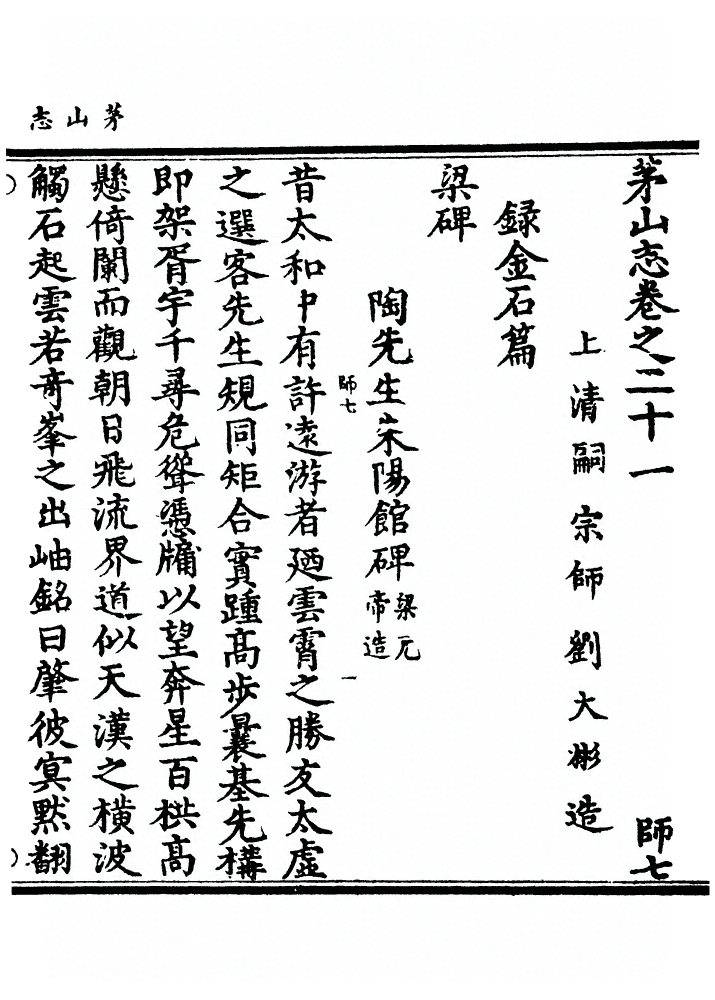 茅山志
茅山志卷之二十一 師七
上清嗣宗師劉大彬造
録金石篇
梁碑
陶先生朱陽館碑梁元帝造
師七 一
昔太和中有許遠游者廼雲霄之勝友太虛
之選客先生規同矩合實踵高步曩基先構
即架胥宇千尋危聳憑牖以望奔星百栱高
懸倚闌而觀朝日飛流界道似天漢之橫波
觸石起雲若奇峯之出岫銘曰肇彼冥默翻